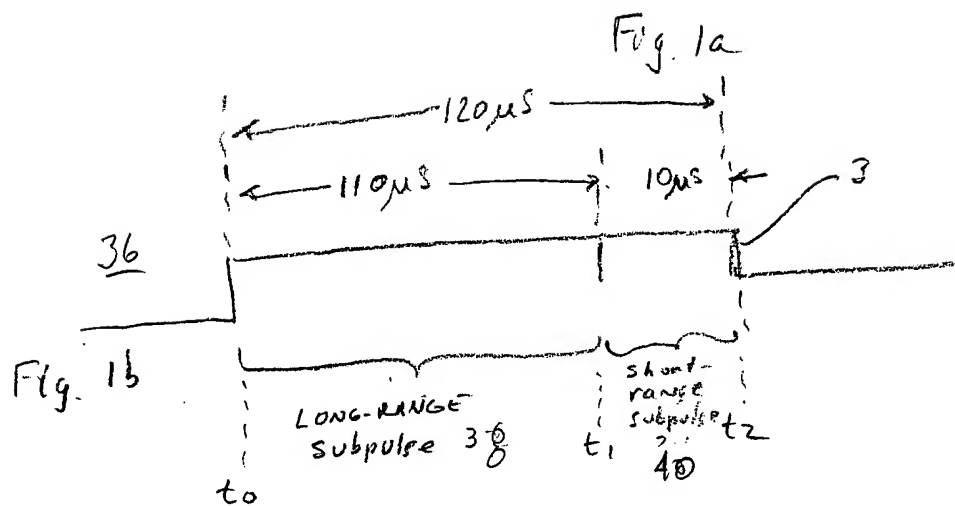 Fig. 1a
120μs
110μs
10μs
3
36
Fig. 1b
LONG-RANGE
subpulse 38
short-
range
subpulse
40
t0
t1
t2